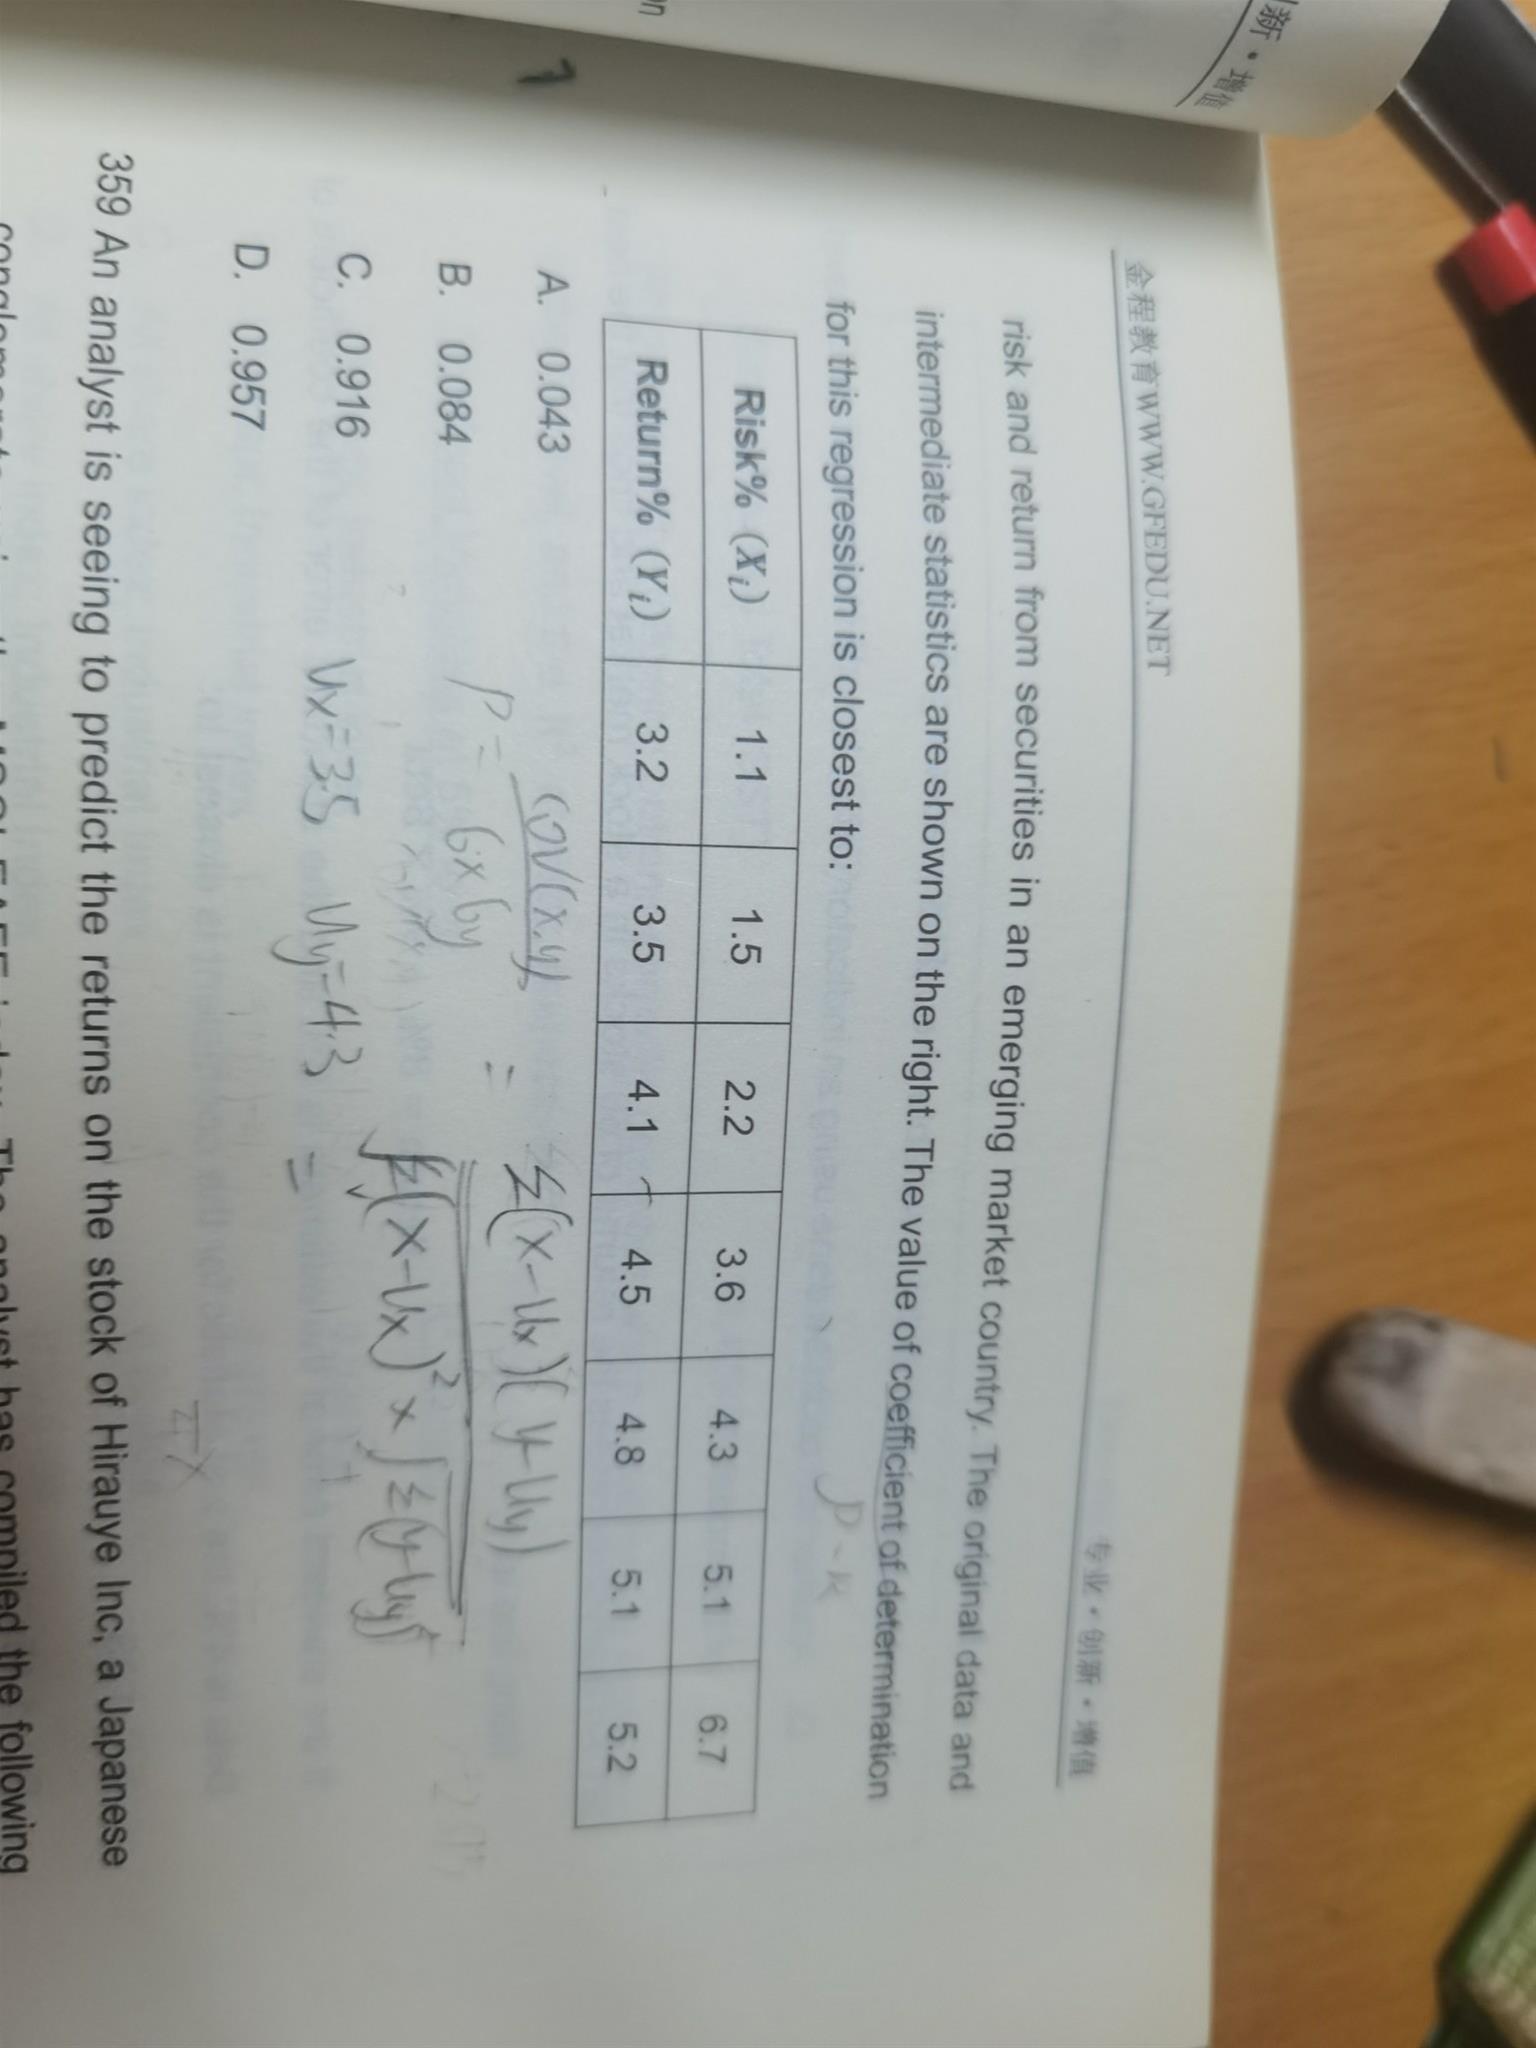 新·增值
金程教育WWW.GFEDU.NET 专业·创新·增值
risk and return from securities in an emerging market country. The original data and
intermediate statistics are shown on the right. The value of coefficient of determination
for this regression is closest to:
Risk% (Xi) 1.1 1.5 2.2 3.6 4.3 5.1 6.7
Return% (Yi) 3.2 3.5 4.1 4.5 4.8 5.1 5.2
A. 0.043
B. 0.084
C. 0.916
D. 0.957
ρ = cov(x,y) / 6x6y = Σ(x-Ux)(y-Uy) / √Σ(x-Ux)² × √Σ(y-Uy)²
Ux=3.5 Uy=4.3 =
359 An analyst is seeing to predict the returns on the stock of Hirauye Inc, a Japanese
The analyst has compiled the following